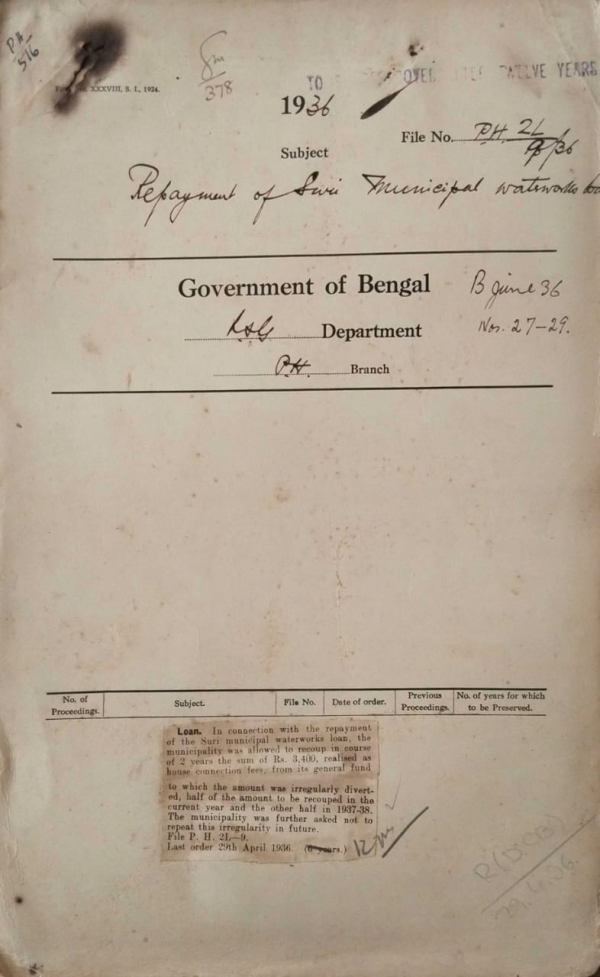 P.H.
516
XXXVIII, S. I., 1926.
378
TO
TWELVE YEARS
1936
File No. P.H. 2L/9/36
Subject
Repayment of Suri Municipal waterworks
Government of Bengal
B June 36
L.S.G Department
Nos. 27-29.
P.H. Branch
No. of Proceedings.
Subject.
File No.
Date of order.
Previous Proceedings.
No. of years for which to be Preserved.
Loan. In connection with the repayment
of the Suri municipal waterworks loan, the
municipality was allowed to recoup in course
of 2 years the sum of Rs. 3,400, realised as
house connection fees, from its general fund
to which the amount was irregularly divert-
ed, half of the amount to be recouped in the
current year and the other half in 1937-38.
The municipality was further asked not to
repeat this irregularity in future.
File P. H. 2L—9.
Last order 29th April 1936. (6 years.) 12
29.4.36.